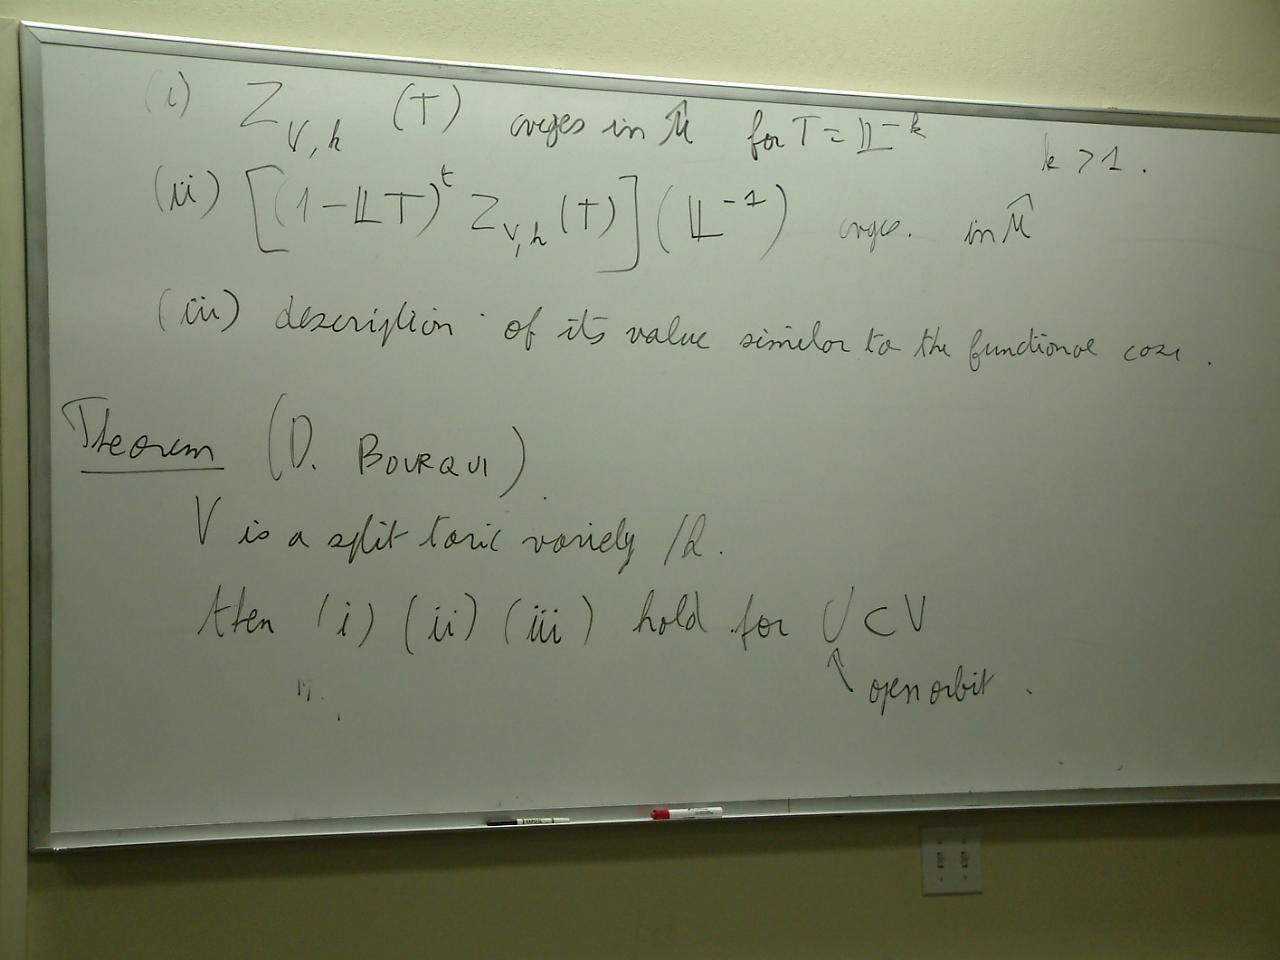 (i) Z_{V,h} (T) cvges in \hat{M} for T = 𝕃^{-k} k > 1.
(ii) [(1-𝕃T)^t Z_{V,h}(T)](𝕃^{-1}) cvges. in \hat{M}
(iii) description of its value similar to the functional case.
Theorem (D. BOURQUI)
V is a split toric variety /k.
then (i) (ii) (iii) hold for U ⊂ V
↑ open orbit.